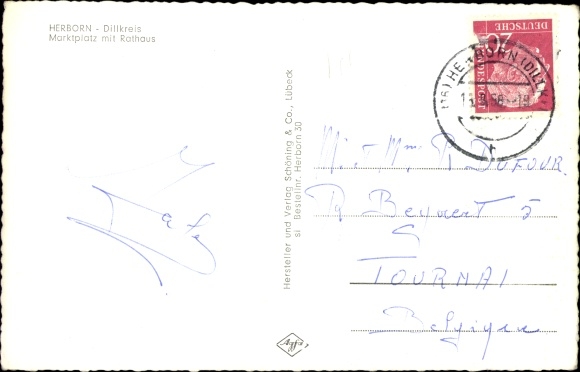 HERBORN - Dillkreis
Marktplatz mit Rathaus
Hersteller und Verlag Schöning & Co., Lübeck
si Bestellnr. Herborn 30
DEUTSCHE
BUNDESPOST
20
(16) HERBORN (DILLKR)
M. & Mme R. DUFOUR
5
TOURNAI
Belgique
Agfa